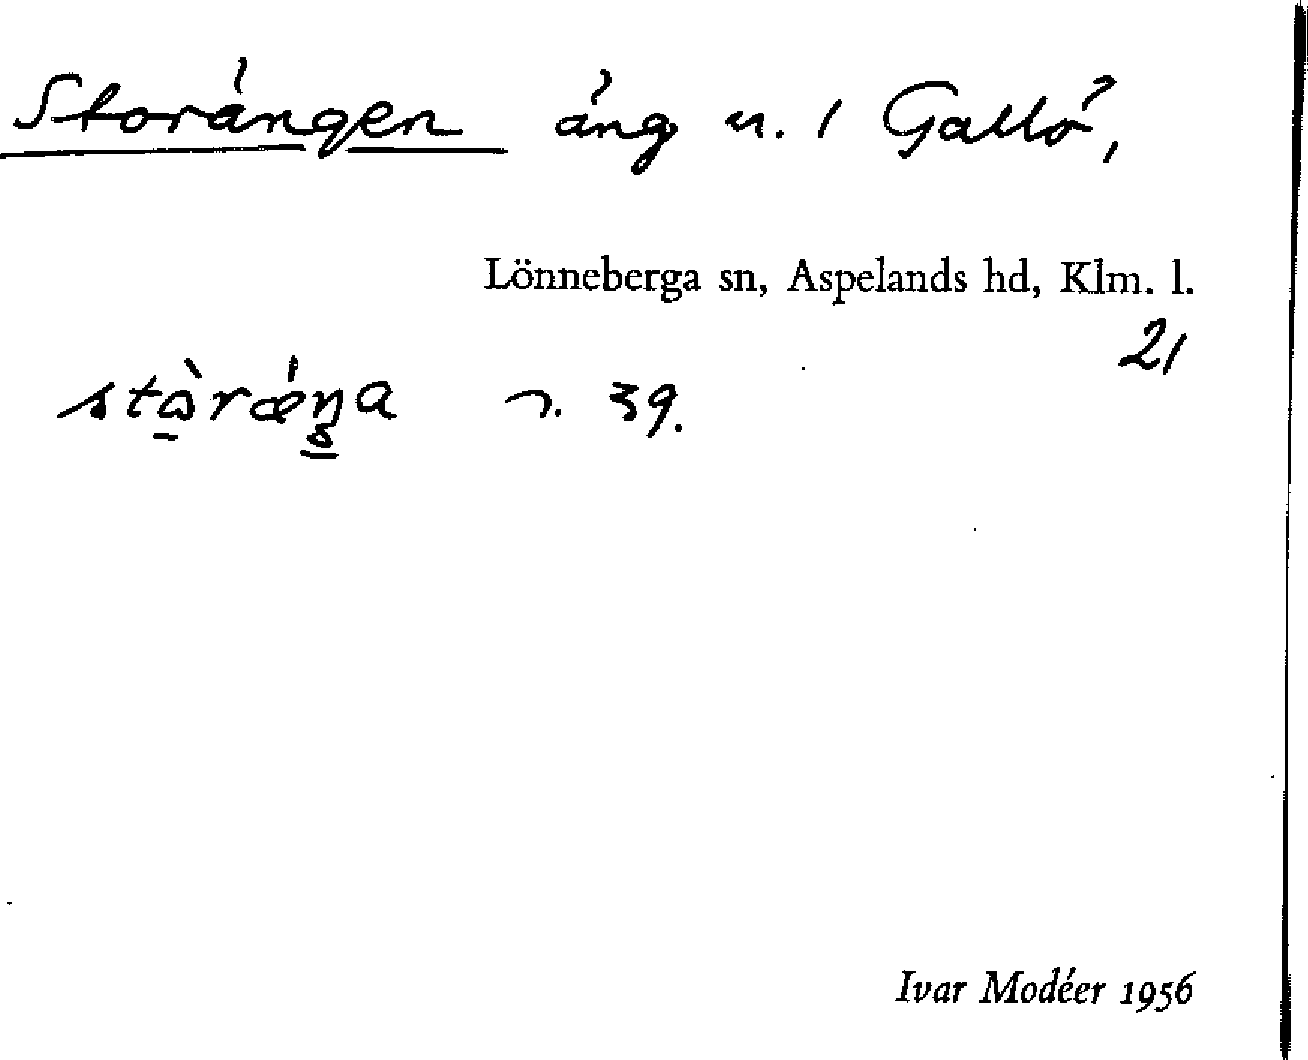 Storängen äng n. 1 Gallö,
Lönneberga sn, Aspelands hd, Klm. l.
21
n. 39.
Ivar Modéer 1956